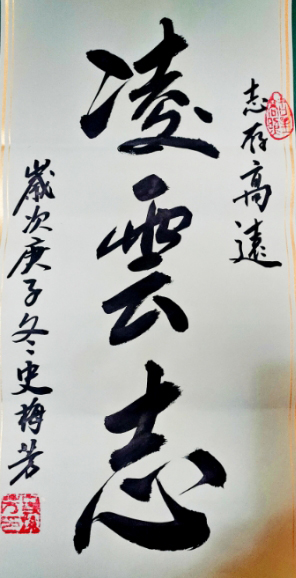 志存高遠
凌雲志
歲次庚子冬史梅芳